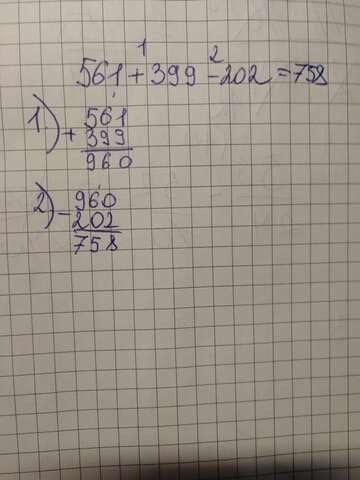 1 2
561+399-202=758
1) +561
399
960
2) -960
202
758